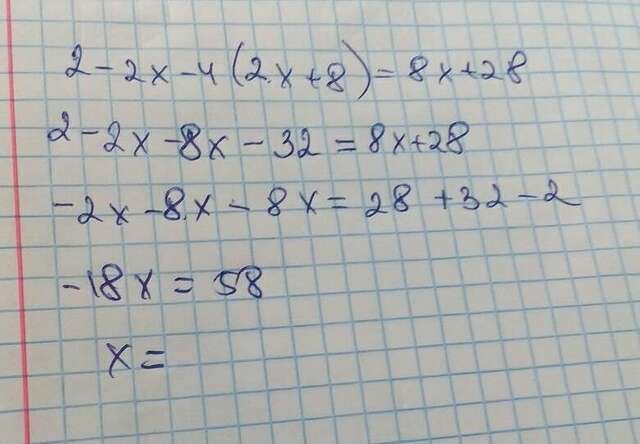 2 - 2x - 4(2x + 8) = 8x + 28
2 - 2x - 8x - 32 = 8x + 28
-2x - 8x - 8x = 28 + 32 - 2
-18x = 58
x =